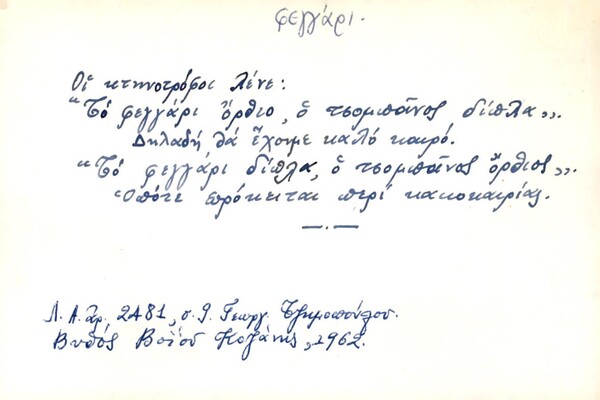 φεγγάρι.
Οἱ κτηνοτρόφοι λένε:
"Τό φεγγάρι ὄρθιο, ὁ τσομπᾶνος δίπλα".
Δηλαδή θά ἔχουμε καλό καιρό.
"Τό φεγγάρι δίπλα, ὁ τσομπᾶνος ὄρθιος".
Ὁπότε πρόκειται περί κακοκαιρίας.
Λ. Α. χρ. 2481, σ. 9. Γεωργ. Τζημοπούλου.
Βυθός Βοΐου Κοζάνης, 1962.